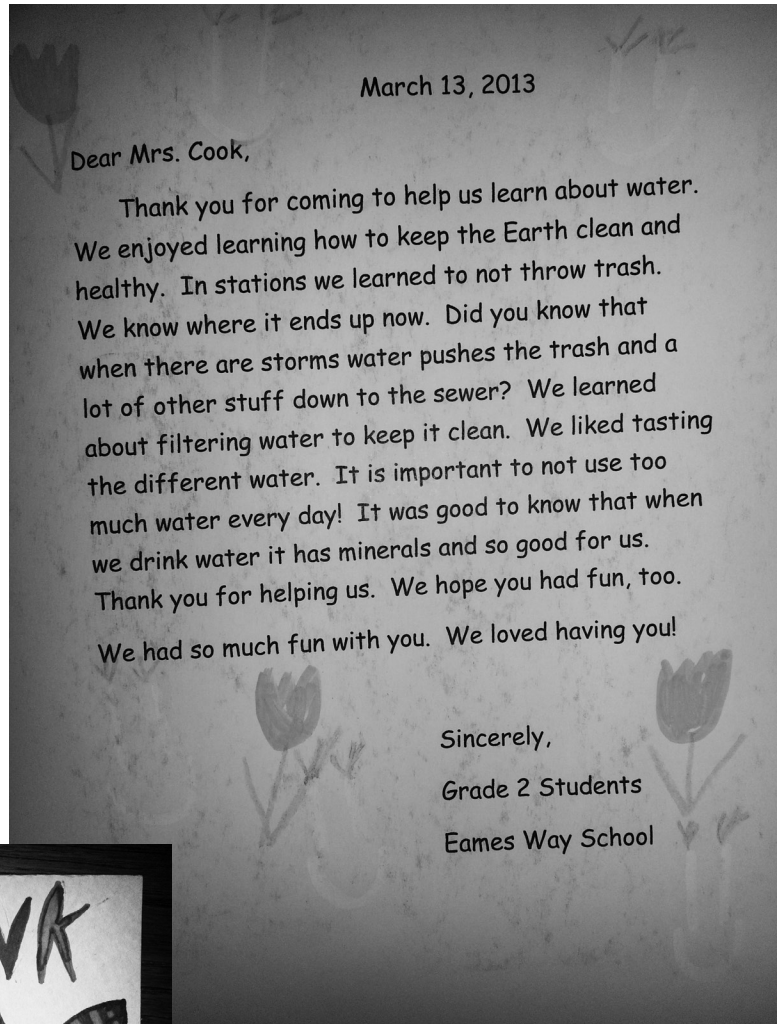 March 13, 2013
Dear Mrs. Cook,
Thank you for coming to help us learn about water.
We enjoyed learning how to keep the Earth clean and
healthy. In stations we learned to not throw trash.
We know where it ends up now. Did you know that
when there are storms water pushes the trash and a
lot of other stuff down to the sewer? We learned
about filtering water to keep it clean. We liked tasting
the different water. It is important to not use too
much water every day! It was good to know that when
we drink water it has minerals and so good for us.
Thank you for helping us. We hope you had fun, too.
We had so much fun with you. We loved having you!
Sincerely,
Grade 2 Students
Eames Way School